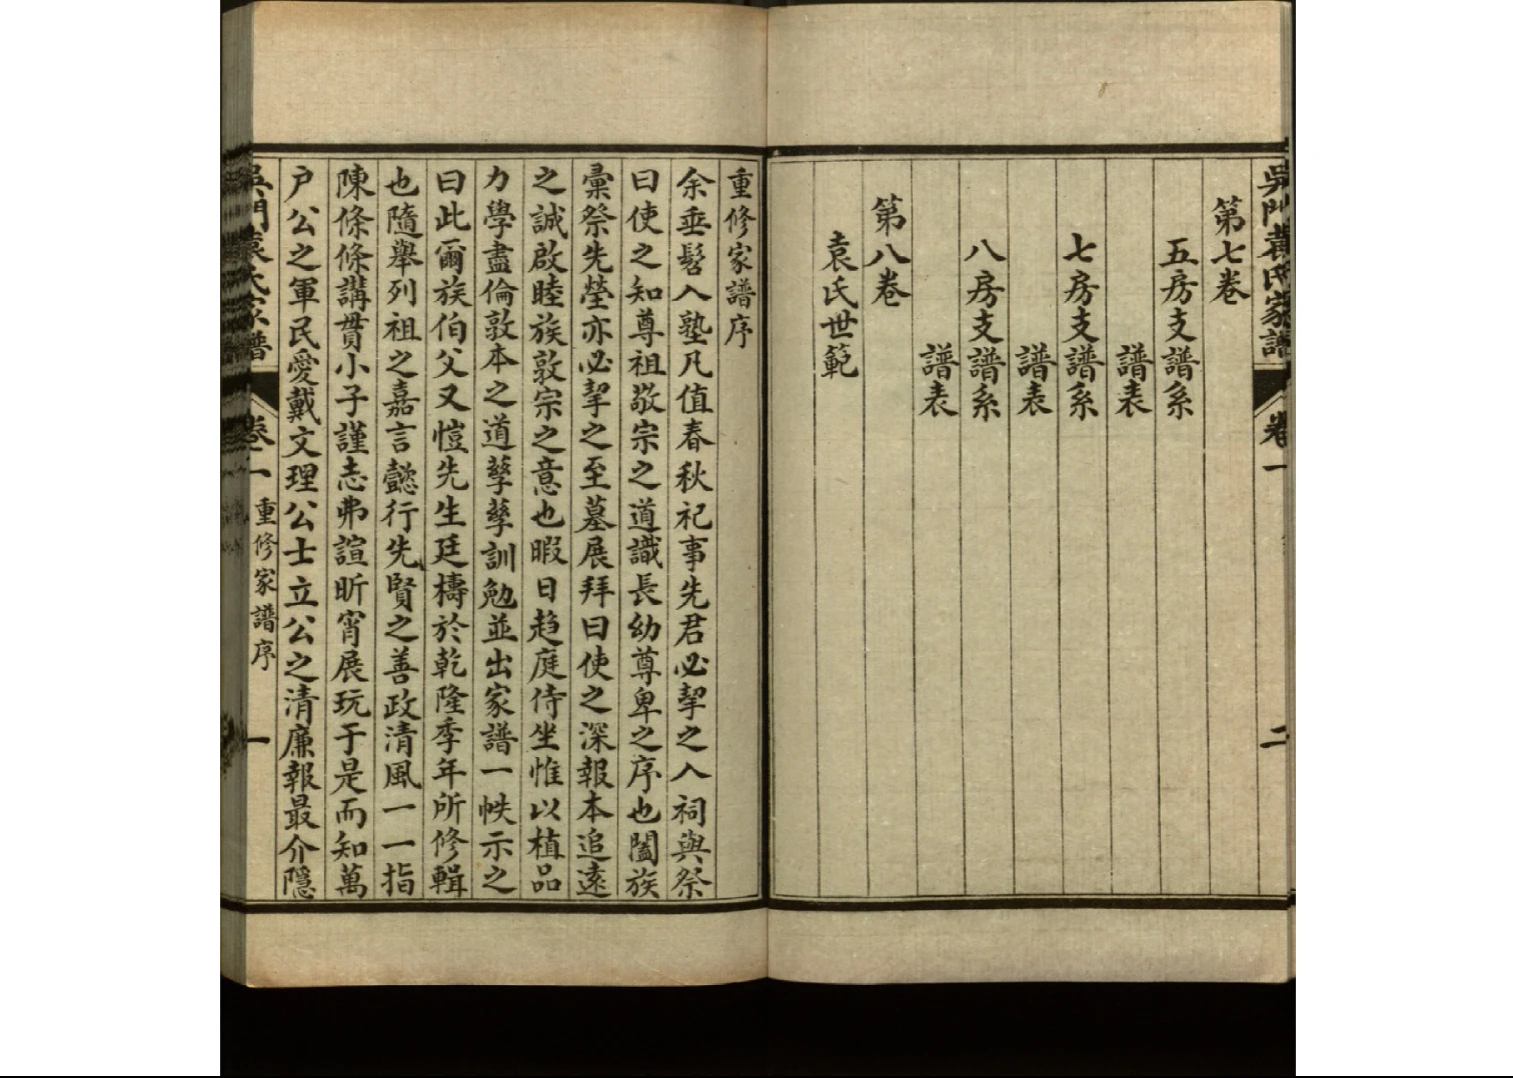 吳門袁氏家譜 卷一 二
第七卷
五房支譜系
譜表
七房支譜系
譜表
八房支譜系
譜表
第八卷
袁氏世範
重修家譜序
余垂髫入塾凡值春秋祀事先君必挈之入祠與祭
曰使之知尊祖敬宗之道識長幼尊卑之序也闔族
彙祭先塋亦必挈之至墓展拜曰使之深報本追遠
之誠啟睦族敦宗之意也暇日趨庭侍坐惟以植品
力學盡倫敦本之道孳孳訓勉並出家譜一帙示之
曰此爾族伯父又愷先生廷檮於乾隆季年所修輯
也隨舉列祖之嘉言懿行先賢之善政清風一一指
陳條條講貫小子謹志弗諠昕宵展玩于是而知萬
户公之軍民愛戴文理公士立公之清廉報最介隱
吳門袁氏家譜 卷一 重修家譜序 一